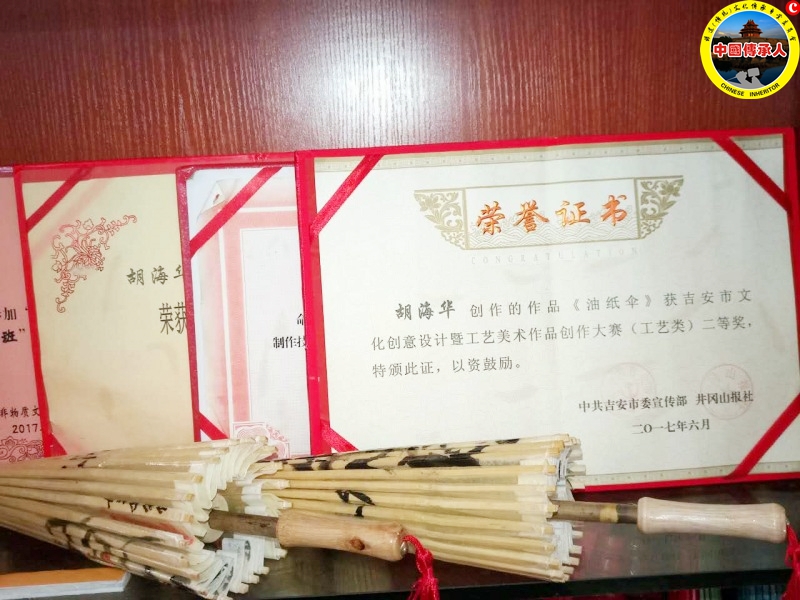 C
中國傳承人
CHINESE INHERITOR
荣誉证书
CONGRATULATION
胡海华 创作的作品《油纸伞》获吉安市文
化创意设计暨工艺美术作品创作大赛（工艺类）二等奖，
特颁此证，以资鼓励。
中共吉安市委宣传部 井冈山报社
二〇一七年六月
胡海华
荣获
制作技
加
班”
非物质文
2017.